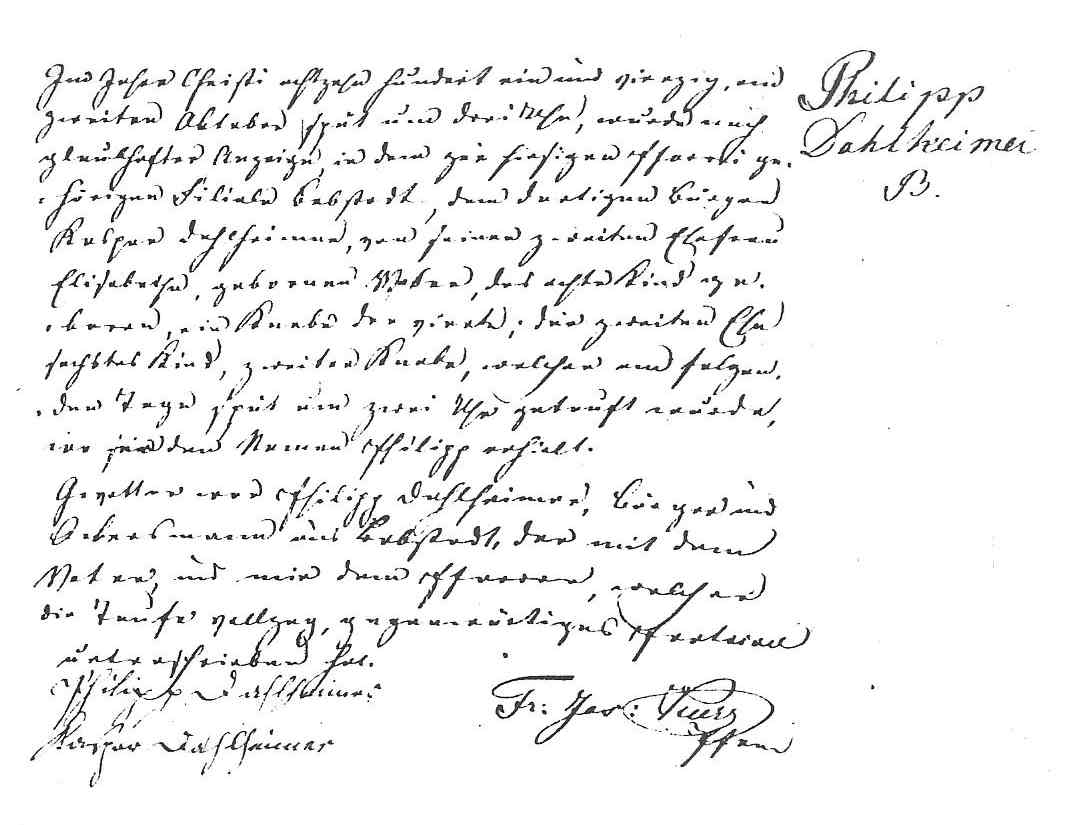 Im Jahre Christi achtzehn hundert ein und vierzig, am
zweiten Oktober spät um drei Uhr, wurde nach
glaubhafter Anzeige, in dem zur hiesigen Pfarrei ge-
-hörigen Filiale Bobstadt, dem dortigen Bürger
Kaspar Dahlheimer, von seiner zweiten Ehefrau
Elisabetha, geborenen Weber, das achte Kind ge-
-boren, ein Knabe der vierte; der zweiten Ehe
sechstes Kind, zweiter Knabe, welcher am folgen-
-den Tage spät um zwei Uhr getauft wurde,
wo er den Namen Philipp erhielt.
Gevatter war Philipp Dahlheimer, Bürger und
Ackersmann aus Bobstadt, der mit dem
Vater, und mir dem Pfarrer, welcher
die Taufe vollzog, gegenwärtiges Protocoll
unterschrieben hat.
Philipp Dahlheimer
Kaspar Dahlheimer
Fr: Jos:
Pfarrer
Philipp
Dahlheimer
B.